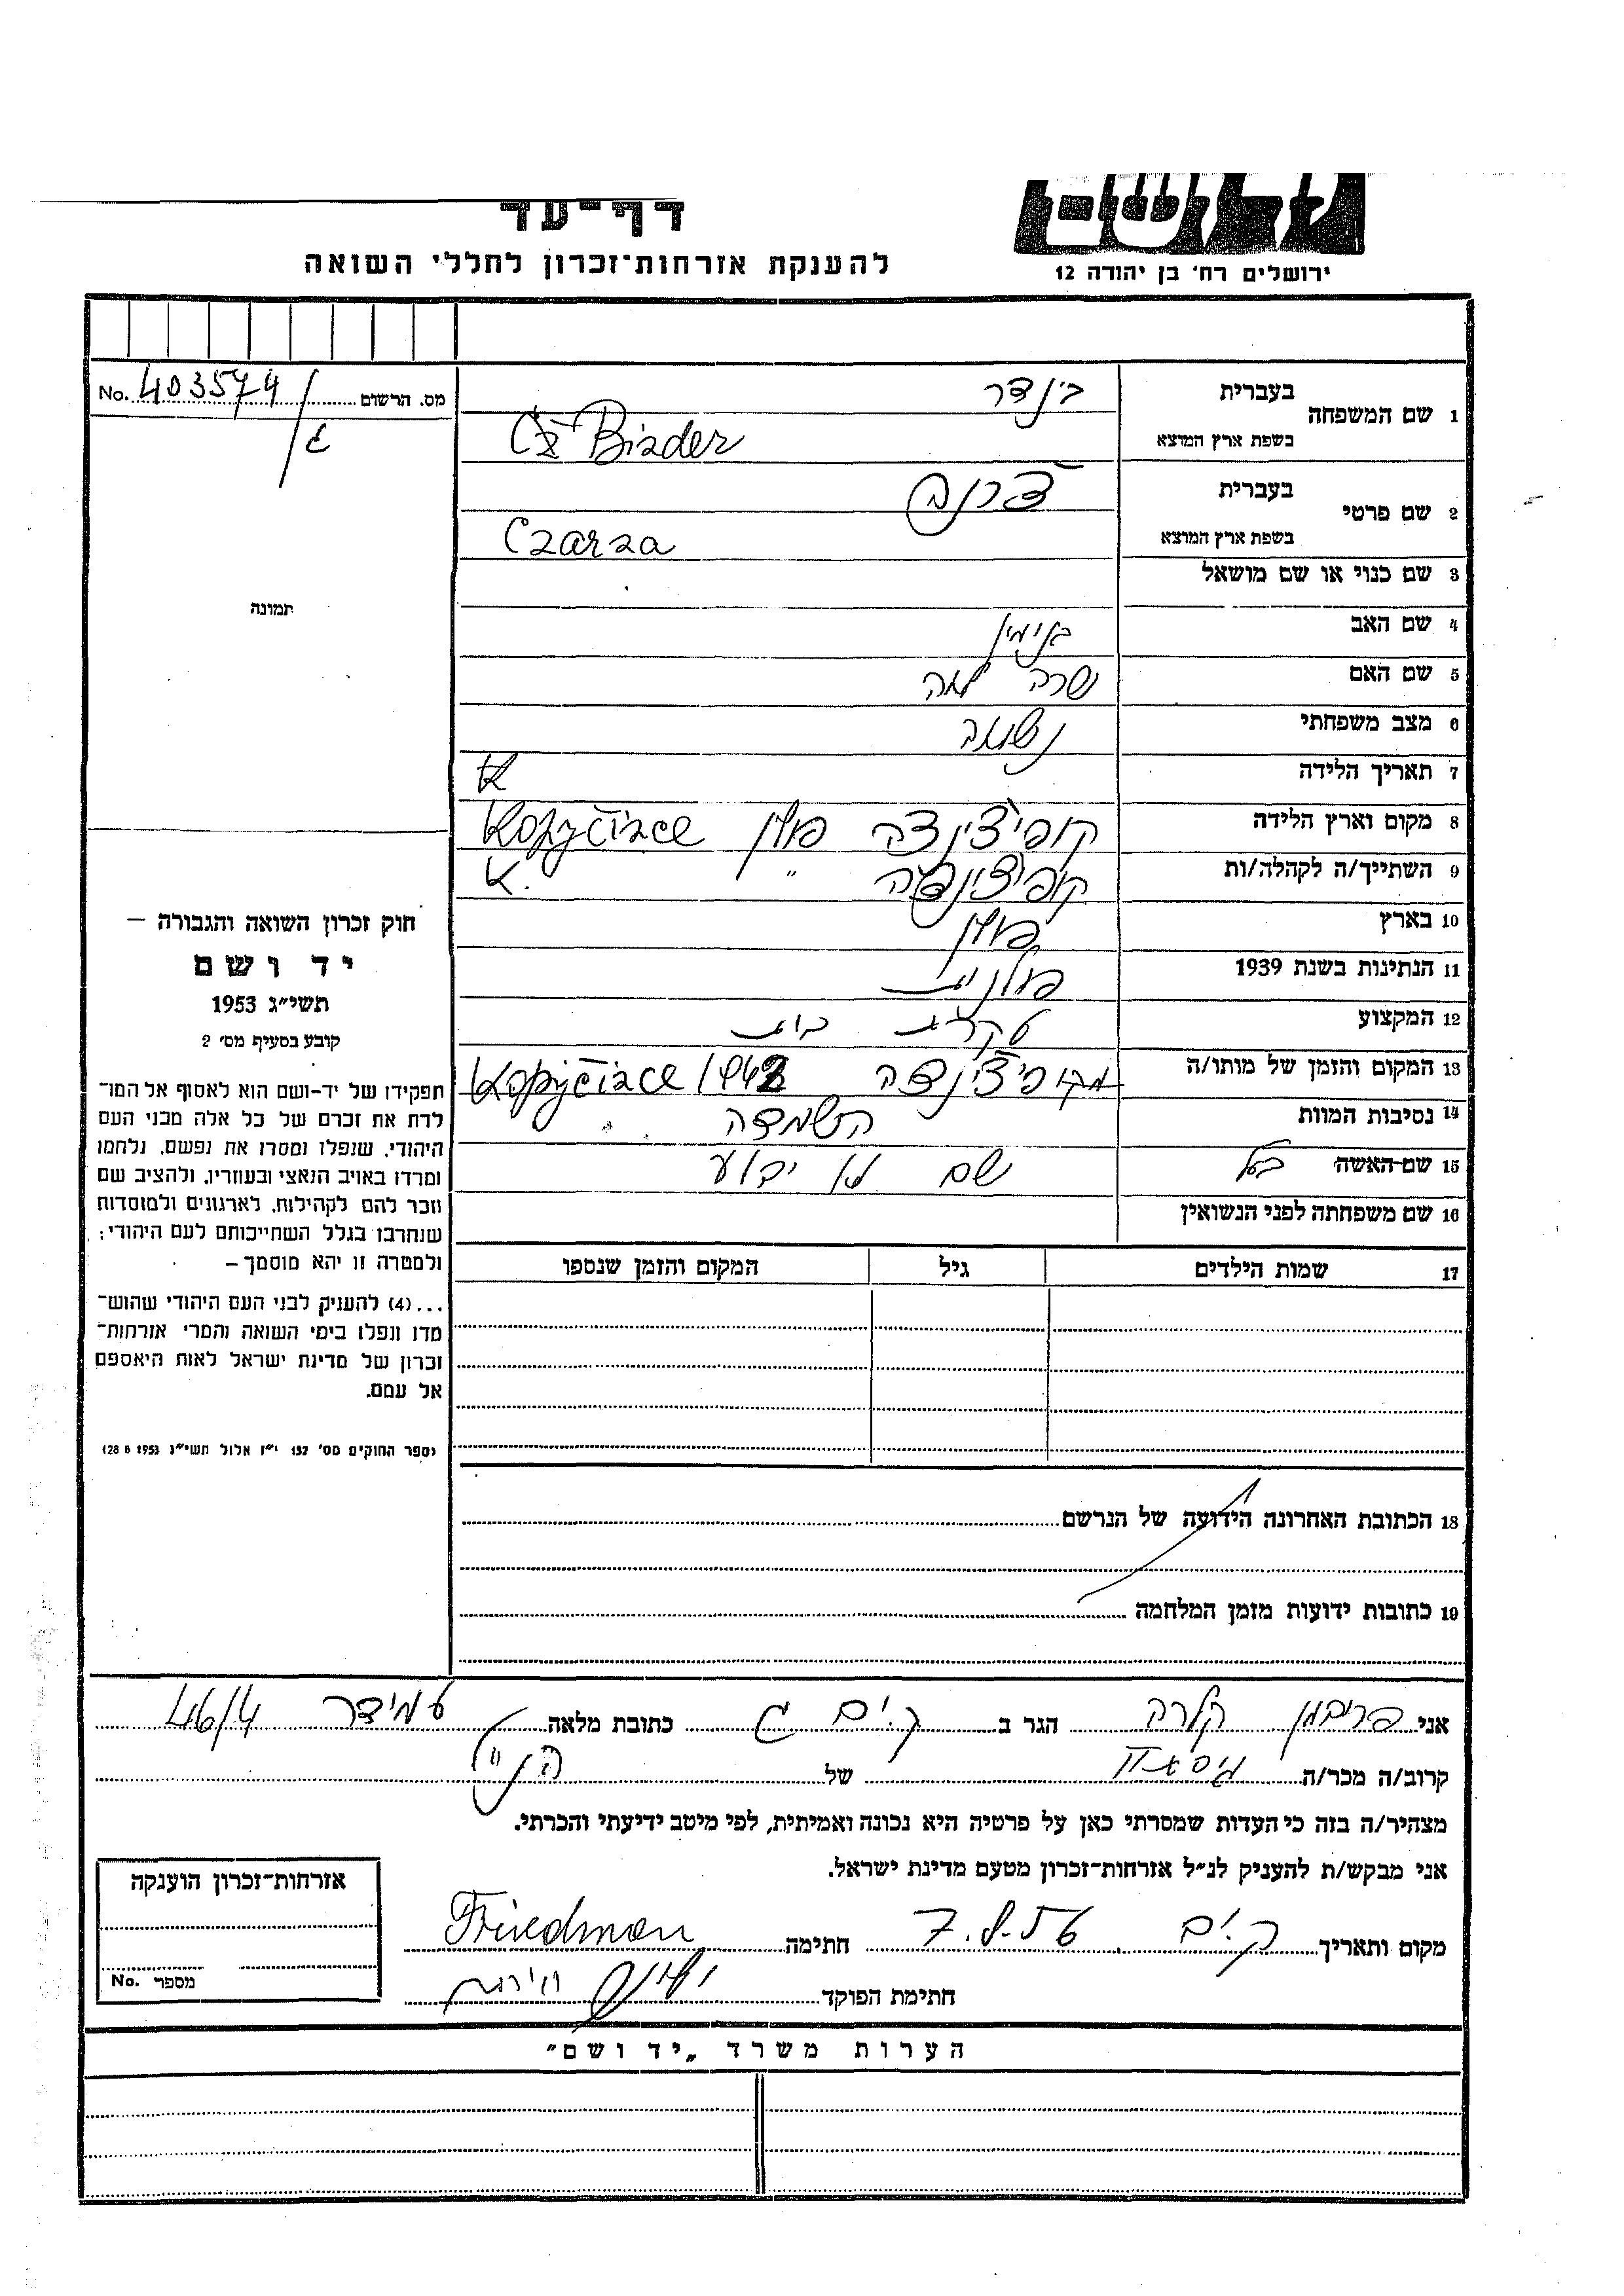 דף־עד
להענקת אזרחות־זכרון לחללי השואה
ירושלים רח' בן יהודה 12
No. 403574 מס. הרשום
1 שם המשפחה
בעברית בינדר
בשפת ארץ המוצא Binder
2 שם פרטי
בעברית צ'רנה
בשפת ארץ המוצא Czarna
3 שם כנוי או שם מושאל
4 שם האב בנימין
5 שם האם שרה לאה
6 מצב משפחתי נשואה
7 תאריך הלידה
8 מקום וארץ הלידה קופיצ'ינצה פולין Kopyčince
9 השתייך/ה לקהלה/ות קופיצ'ינצה " K.
10 בארץ פולין
11 הנתינות בשנת 1939 פולנית
12 המקצוע עקרת בית
13 המקום והזמן של מותו/ה קופיצ'ינצה Kopyčince 1942
14 נסיבות המוות השמדה
15 שם האשה בעל שם לא ידוע
16 שם משפחתה לפני הנשואין
17 שמות הילדים גיל המקום והזמן שנספו
18 הכתובת האחרונה הידועה של הנרשם
19 כתובות ידועות מזמן המלחמה
תמונה
חוק זכרון השואה והגבורה –
יד ושם
תשי״ג 1953
קובע בסעיף מס' 2
תפקידו של יד-ושם הוא לאסוף אל המו־
לדת את זכרם של כל אלה מבני העם
היהודי, שנפלו ומסרו את נפשם, נלחמו
ומרדו באויב הנאצי ובעוזריו, ולהציב שם
וזכר להם לקהילות, לארגונים ולמוסדות
שנחרבו בגלל השתייכותם לעם היהודי;
ולמטרה זו יהא מוסמך –
...(4) להעניק לבני העם היהודי שהוש־
מדו ונפלו בימי השואה והמרי אזרחות־
זכרון של מדינת ישראל לאות היאספם
אל עמם.
(ספר החוקים מס' 132 י״ז אלול תשי״ג 28 8 1953)
אני פרידמן קלרה הגר ב ק. ים ג כתובת מלאה עמידר 46/4
קרוב/ה מכר/ה גיסה של הנ״ל
מצהיר/ה בזה כי העדות שמסרתי כאן על פרטיה היא נכונה ואמיתית, לפי מיטב ידיעתי והכרתי.
אני מבקש/ת להעניק לנ״ל אזרחות־זכרון מטעם מדינת ישראל.
מקום ותאריך ק. ים 7.8.56 חתימה Friedman
חתימת הפוקד
אזרחות־זכרון הוענקה
מספר No.
הערות משרד „יד ושם״